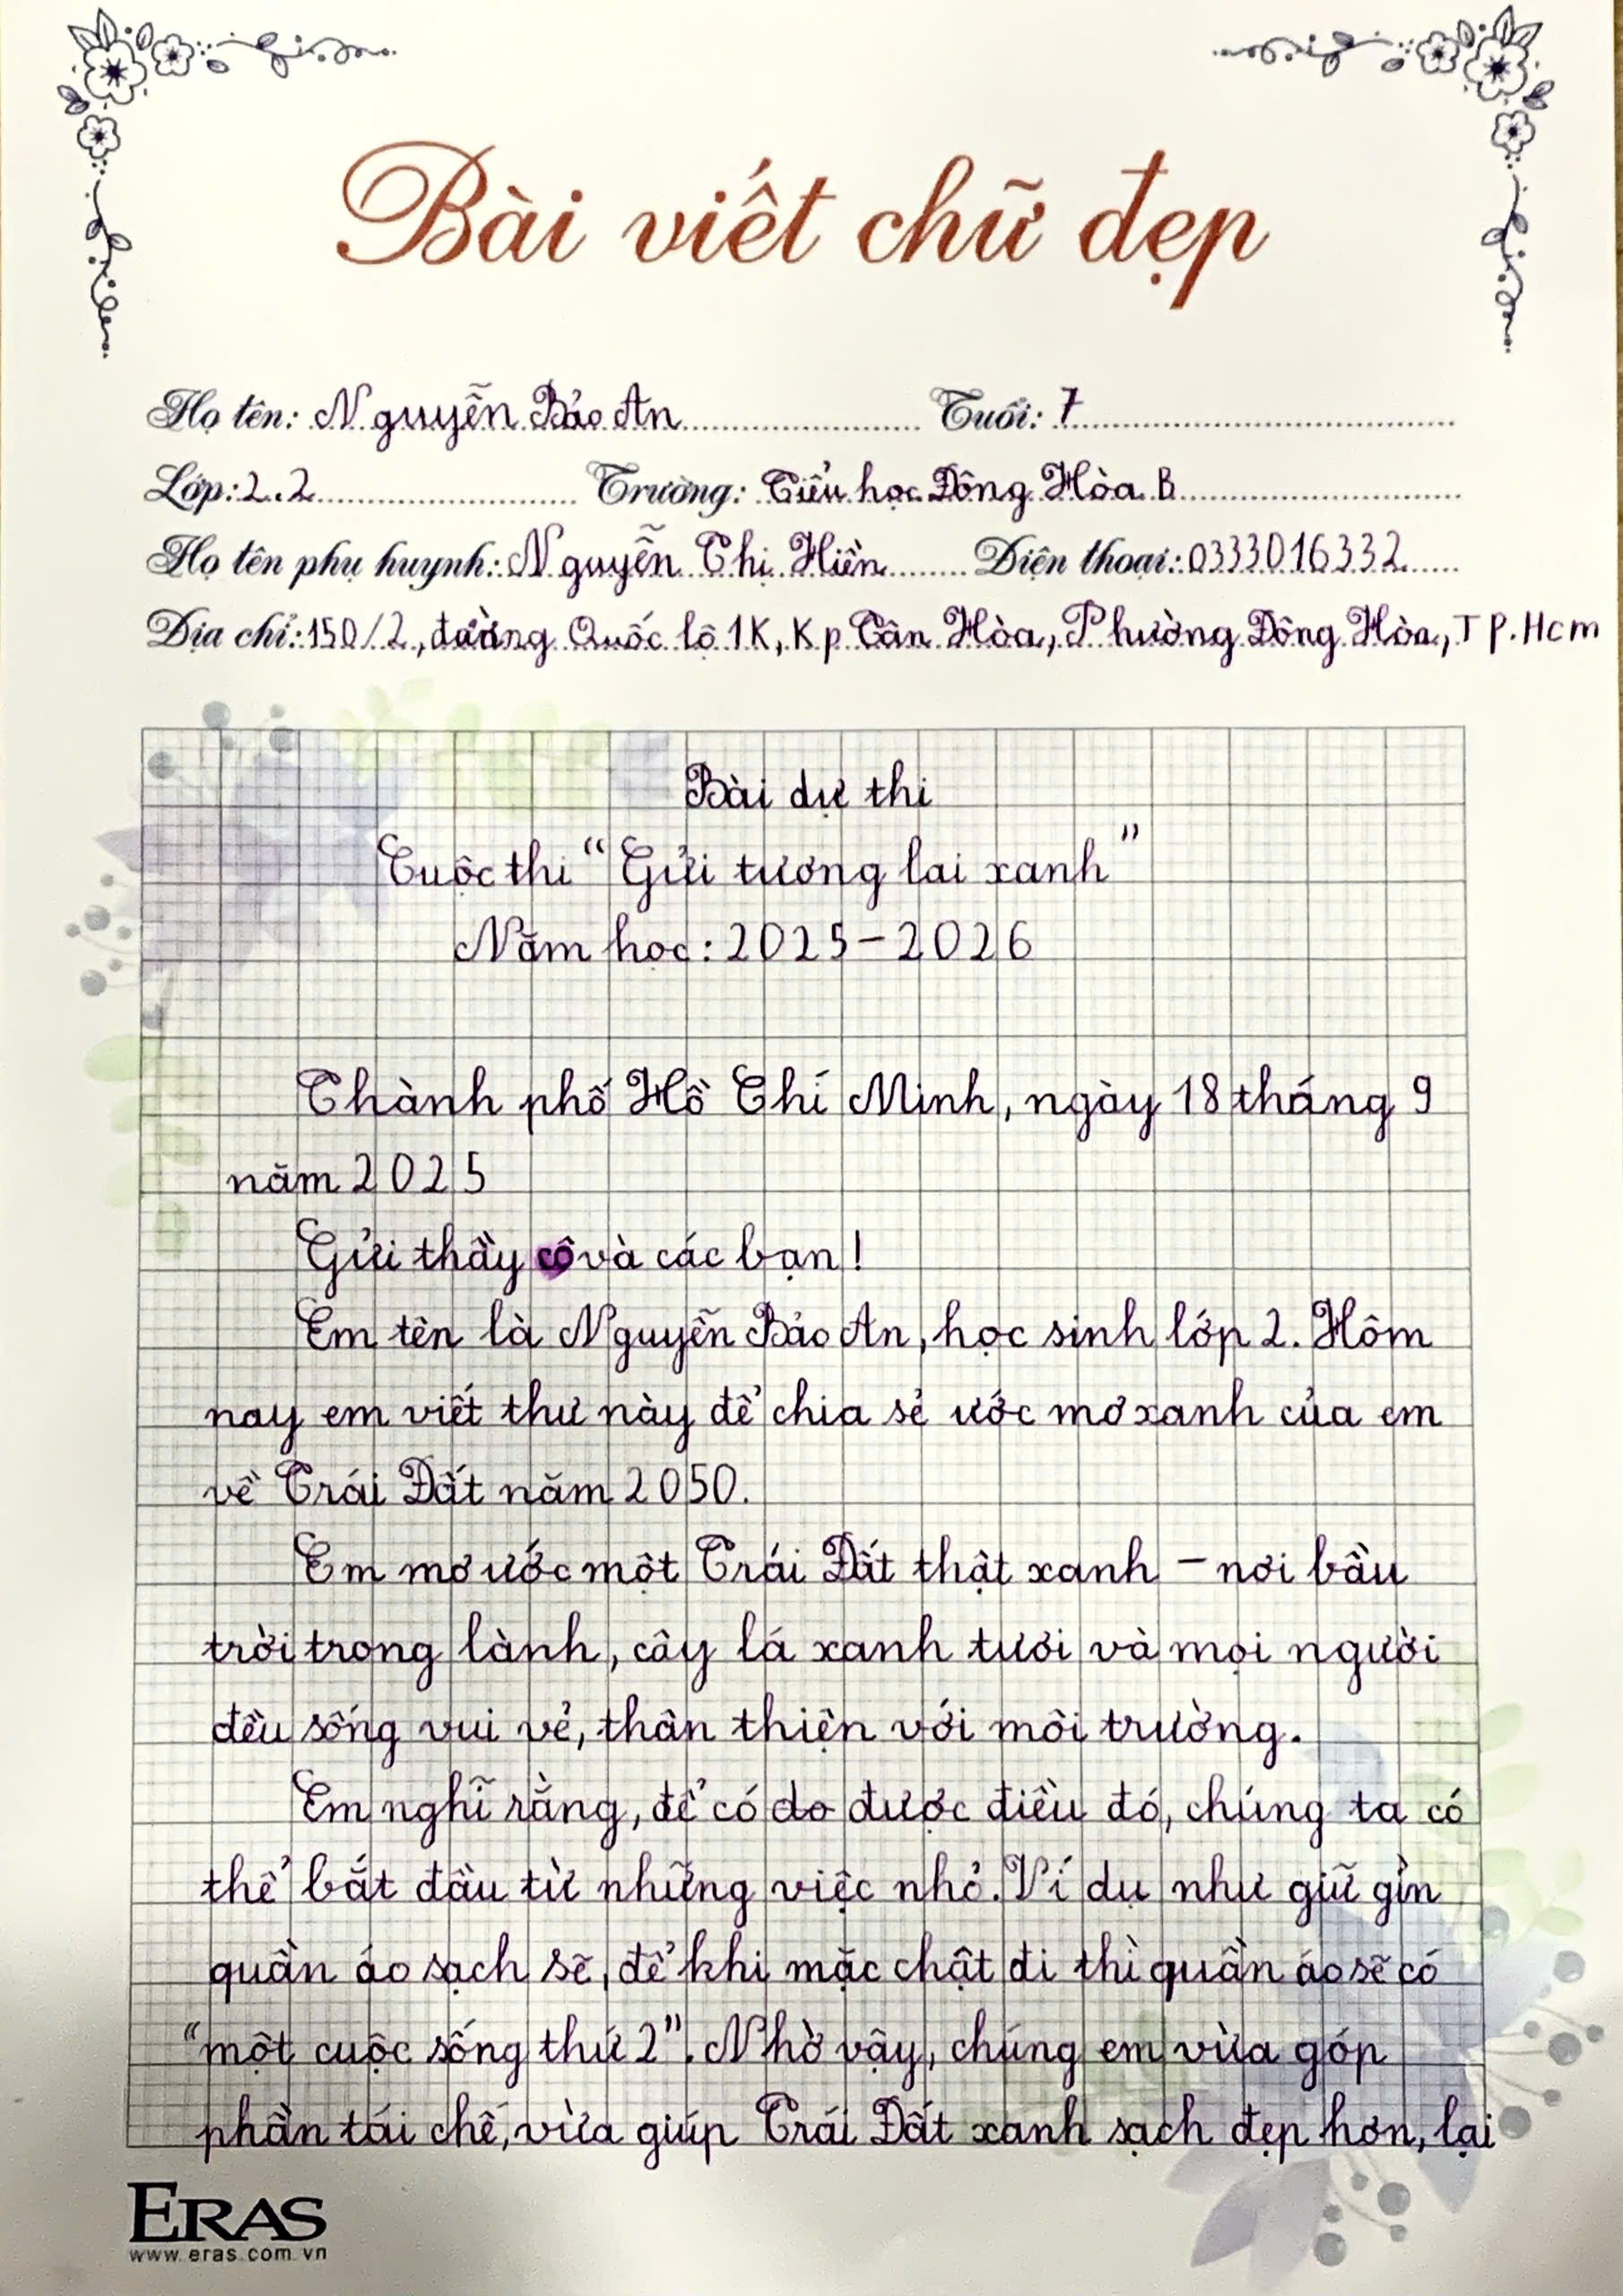 Bài viết chữ đẹp
Họ tên: Nguyễn Bảo An Tuổi: 7
Lớp: 2.2 Trường: Tiểu học Đông Hòa B
Họ tên phụ huynh: Nguyễn Thị Hiền Điện thoại: 0333016332
Địa chỉ: 150/2, đường Quốc lộ 1K, Kp Tân Hòa, Phường Đông Hòa, TP.Hcm
Bài dự thi
Cuộc thi "Gửi tương lai xanh"
Năm học: 2025-2026
Thành phố Hồ Chí Minh, ngày 18 tháng 9
năm 2025
Gửi thầy cô và các bạn!
Em tên là Nguyễn Bảo An, học sinh lớp 2. Hôm
nay em viết thư này để chia sẻ ước mơ xanh của em
về Trái Đất năm 2050.
Em mơ ước một Trái Đất thật xanh - nơi bầu
trời trong lành, cây lá xanh tươi và mọi người
đều sống vui vẻ, thân thiện với môi trường.
Em nghĩ rằng, để có do được điều đó, chúng ta có
thể bắt đầu từ những việc nhỏ. Ví dụ như giữ gìn
quần áo sạch sẽ, để khi mặc chật đi thì quần áo sẽ có
"một cuộc sống thứ 2". Nhờ vậy, chúng em vừa góp
phần tái chế, vừa giúp Trái Đất xanh sạch đẹp hơn, lại
ERAS
www.eras.com.vn